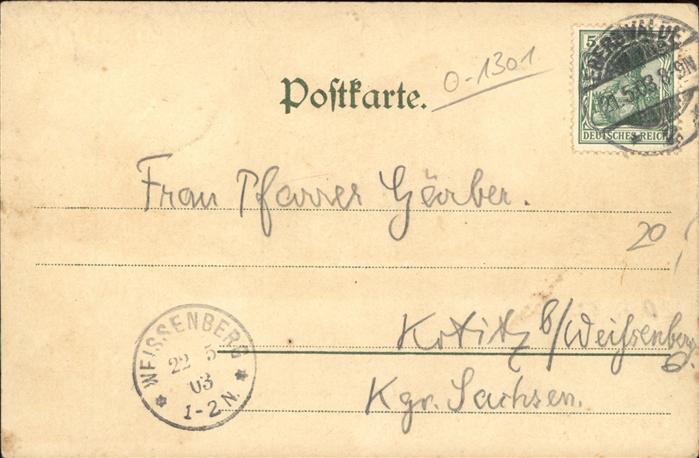 Postkarte.
0-1301
5
EBERSWALDE
21.5.03.8-9N
DEUTSCHES REICH
Frau Pfarrer Gärber.
20
Kotitz b/Weißenberg
Kgr. Sachsen.
WEISSENBERG
22 5
03
1-2 N.